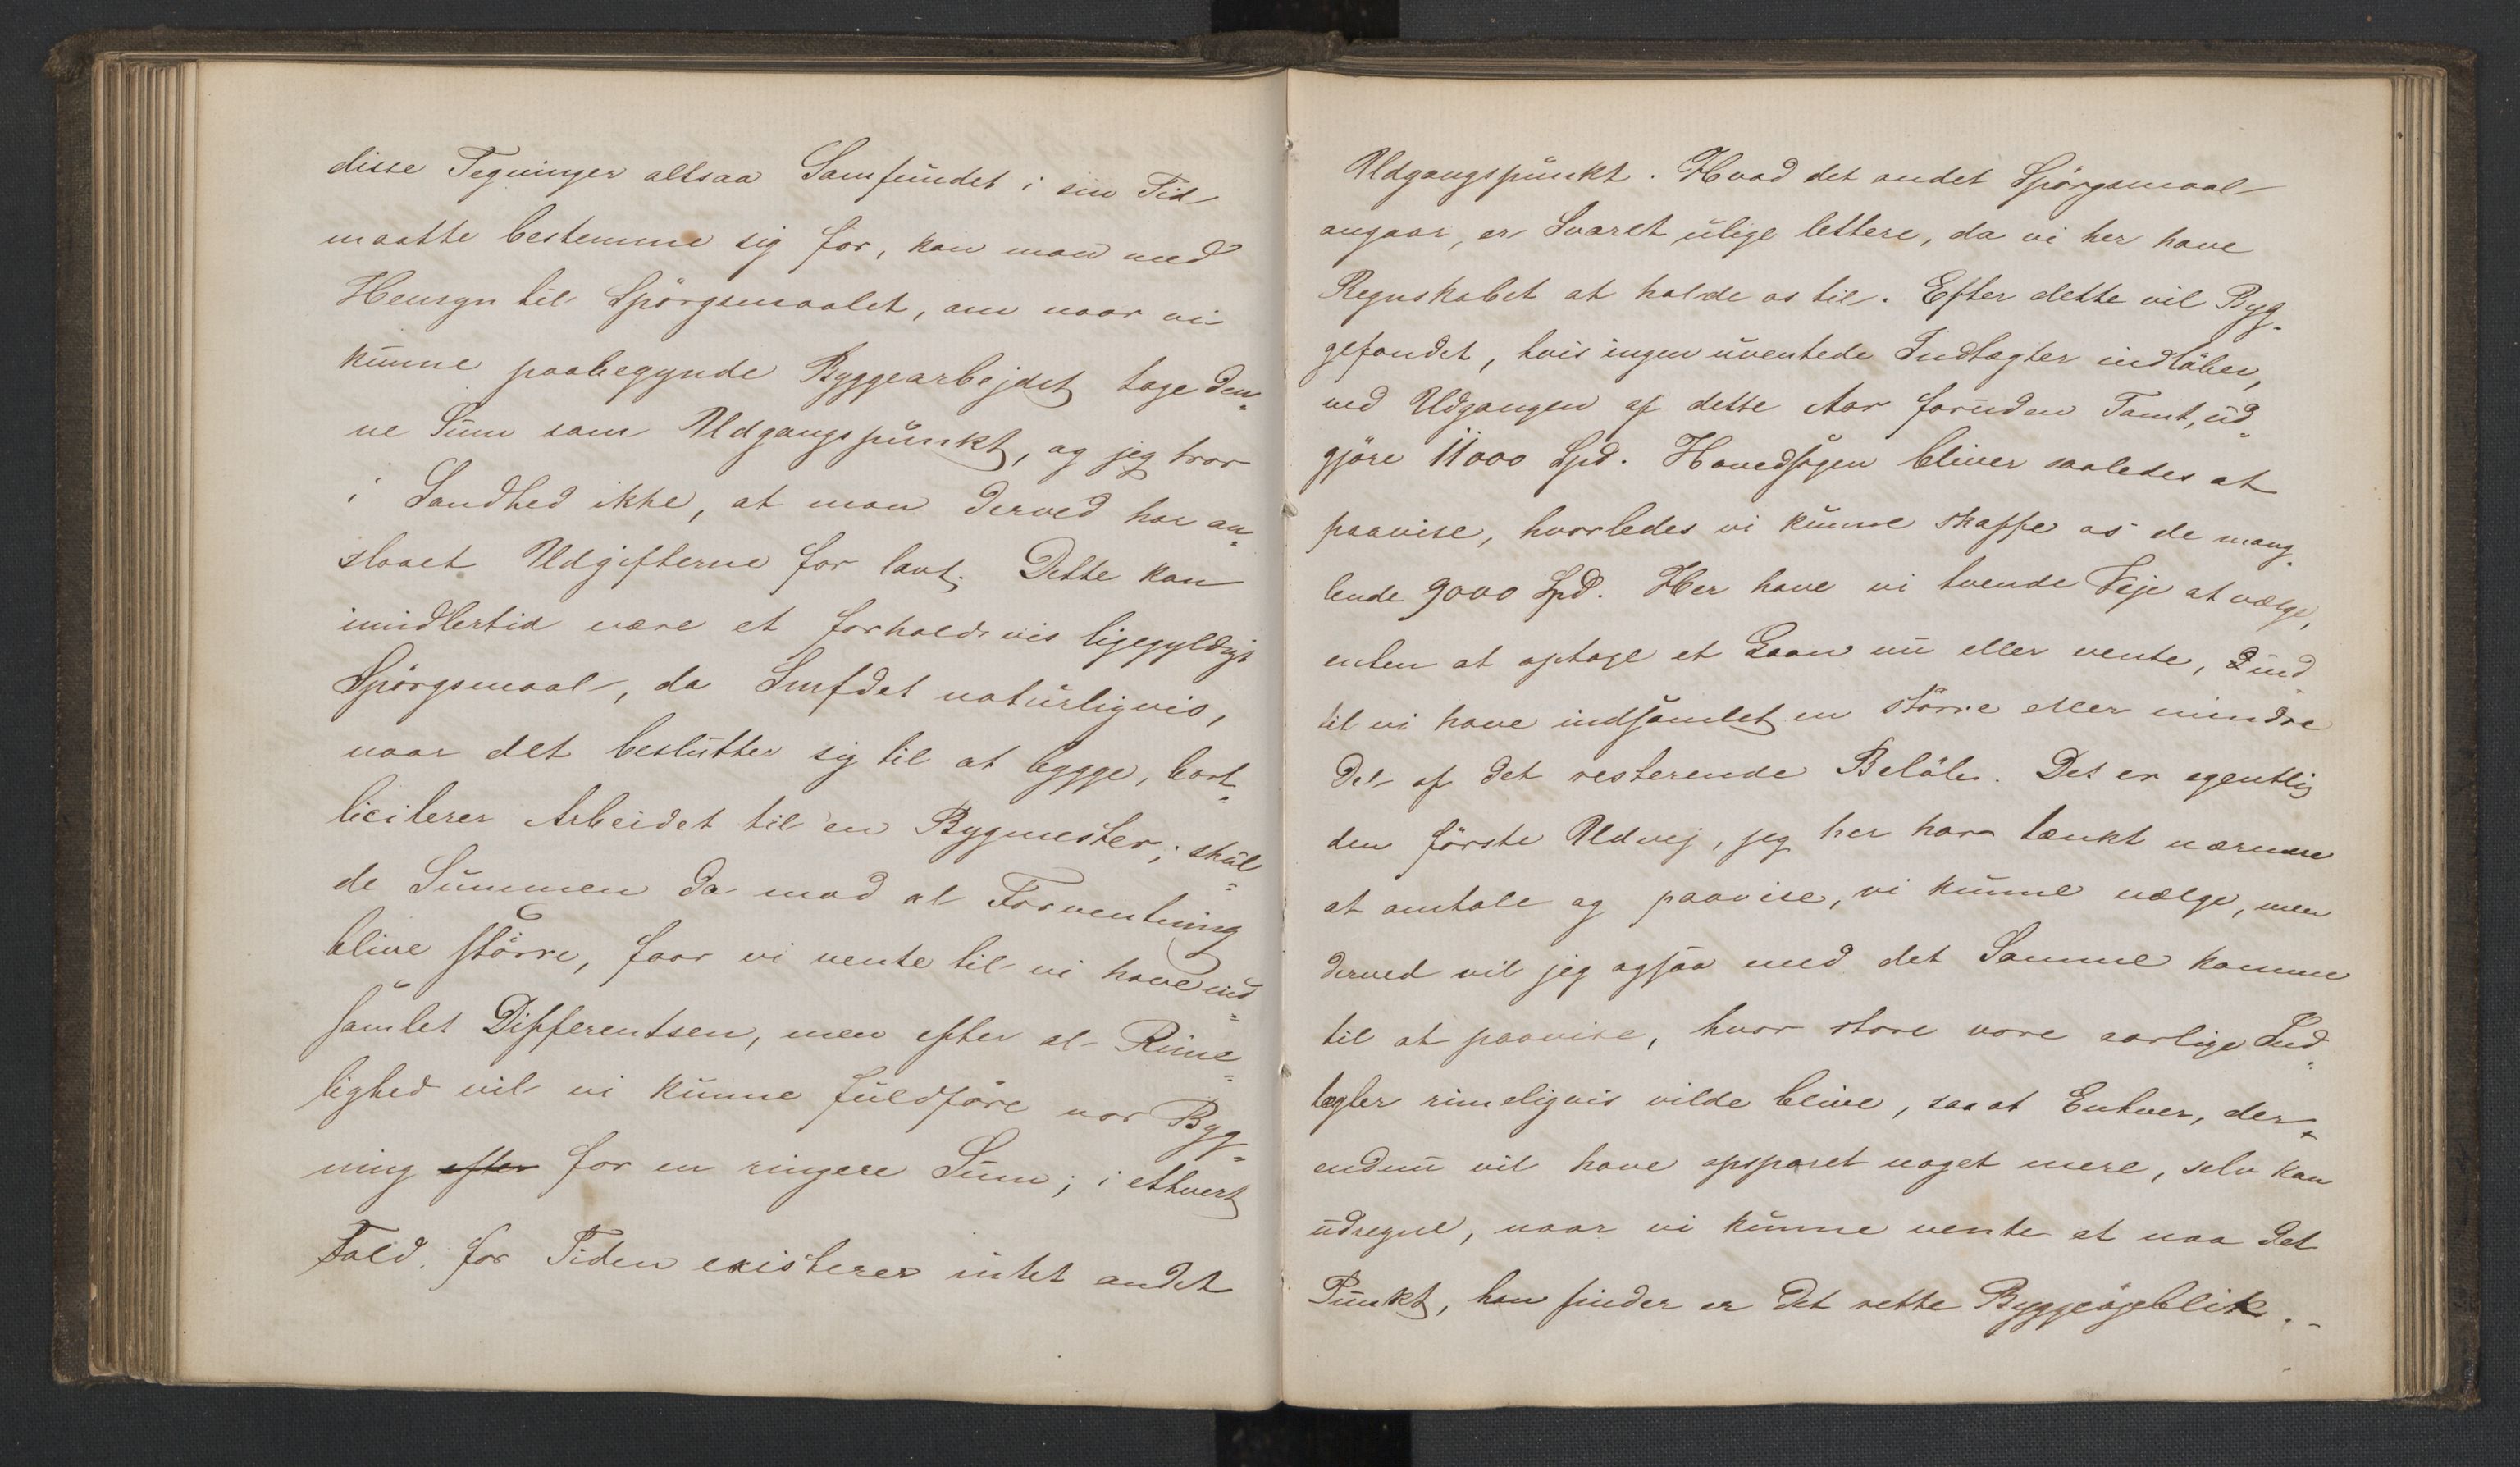 disse Tegninger altsaa Samfundet i sin Tid
maatte bestemme sig for, kan man med
Hensyn til Spörgsmaalet, om naar vi
kunne paabegynde Byggearbejdet tage den-
ne Sum som Udgangspunkt, og jeg tror
i Sandhed ikke, at man derved har an-
slaaet Udgifterne for lavt. Dette kan
imidlertid være et forholdsvis ligegyldigt
Spörgsmaal, da Smfdet naturligvis,
naar det beslutter sig til at bygge, bort-
liciterer Arbeidet til en Bygmester; skul-
de Summen da mod al Forventning
blive större, faar vi vente til vi have ind-
samlet Differentsen, men efter al Rime-
lighed vil vi kunne fuldföre vor Byg-
ning efter for en ringere Sum; i ethvert
Fald. for Tiden existerer intet andet
Udgangspunkt. Hvad det andet Spörgsmaal
angaar, er Svaret ulige lettere, da vi her have
Regnskabet at holde os til. Efter dette vil Byg-
gefondet, hvis ingen uventede Indtægter indlöber,
ved Udgangen af dette Aar foruden Tomt, ud-
gjöre 11000 Spd. Hovedsagen bliver saaledes at
paavise, hvorledes vi kunne skaffe os de mang-
lende 9000 Spd. Her have vi tvende Veje at vælge,
enten at optage et Laan nu eller vente, ind-
til vi have indsamlet en större eller mindre
Del af det resterende Belöb. Det er egentlig
den förste Udvej, jeg her har tænkt nærmere
at omtale og paavise, vi kunne vælge, men
derved vil jeg ogsaa med det Samme komme
til at paavise, hvor store vore aarlige Ind-
tægter rimeligvis vilde blive, saa at Enhver, der
endnu vil have opsparet noget mere, selv kan
udregne, naar vi kunne vente at naa det
Punkt, han finder er det rette Byggeöjeblik. -